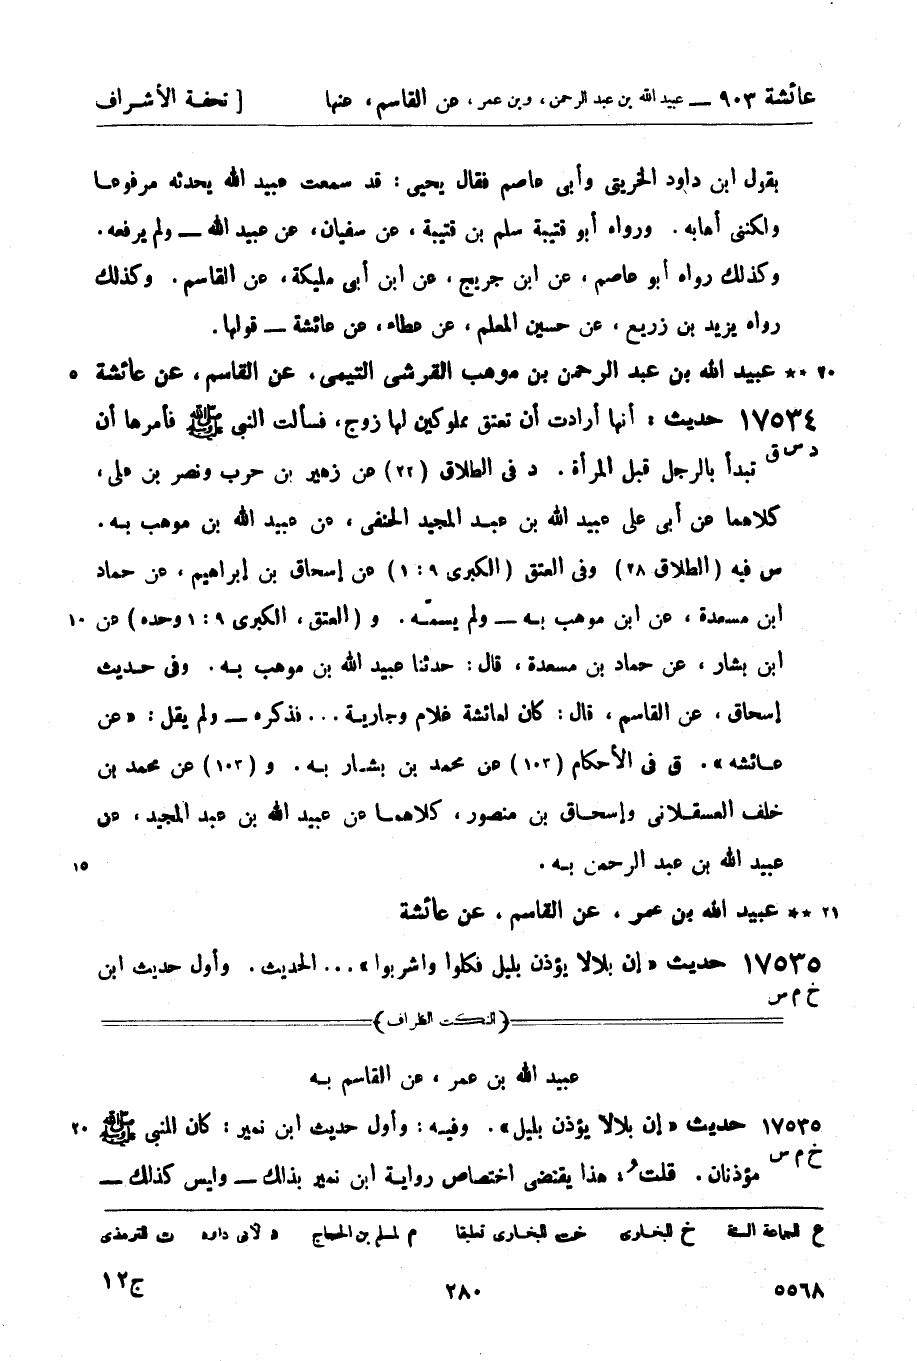 عائشة ٩٠٣ — عبيد الله بن عبد الرحمن، وبن عمر، عن القاسم، عنها [ تحفة الأشراف
بقول ابن داود الخريبى وأبى عاصم فقال يحيى: قد سمعت عبيد الله يحدثه مرفوعا
ولكنى أهابه. ورواه أبو قتيبة سلم بن قتيبة، عن سفيان، عن عبيد الله — ولم يرفعه.
وكذلك رواه أبو عاصم، عن ابن جريج، عن ابن أبى مليكة، عن القاسم. وكذلك
رواه يزيد بن زريع، عن حسين المعلم، عن عطاء، عن عائشة — قولها.
٢٠ ** عبيد الله بن عبد الرحمن بن موهب القرشى التيمى، عن القاسم، عن عائشة ٥
١٧٥٣٤ حديث: أنها أرادت أن تعتق مملوكين لها زوج، فسألت النبى ﷺ فأمرها أن
د س ق تبدأ بالرجل قبل المرأة. د فى الطلاق (٢٢) عن زهير بن حرب ونصر بن على،
كلاهما عن أبى على عبيد الله بن عبد المجيد الحنفى، عن عبيد الله بن موهب به.
س فيه (الطلاق ٢٨) وفى العتق (الكبرى ٩: ١) عن إسحاق بن إبراهيم، عن حماد
ابن مسعدة، عن ابن موهب به — ولم يسمّه. و (العتق، الكبرى ٩: ١ وحده) عن ١٠
ابن بشار، عن حماد بن مسعدة، قال: حدثنا عبيد الله بن موهب به. وفى حديث
إسحاق، عن القاسم، قال: كان لعائشة غلام وجارية... فذكره — ولم يقل: «عن
عائشه». ق فى الأحكام (١٠٣) عن محمد بن بشار به. و (١٠٣) عن محمد بن
خلف العسقلانى وإسحاق بن منصور، كلاهما عن عبيد الله بن عبد المجيد، عن
عبيد الله بن عبد الرحمن به. ١٥
٢١ ** عبيد الله بن عمر، عن القاسم، عن عائشة
١٧٥٣٥ حديث «إن بلالا يؤذن بليل فكلوا واشربوا»... الحديث. وأول حديث ابن
خ م س
(النكت الظراف)
عبيد الله بن عمر، عن القاسم به
١٧٥٣٥ حديث «إن بلالا يؤذن بليل». وفيه: وأول حديث ابن نمير: كان للنبى ﷺ ٢٠
خ م س مؤذنان. قلتُ: هذا يقتضى اختصاص رواية ابن نمير بذلك — وليس كذلك —
ع للجماعة الستة خ للبخارى خت للبخارى تعليقا م لمسلم بن الحجاج د لأبى داود ت للترمذى
٥٥٦٨ ٢٨٠ ج١٢